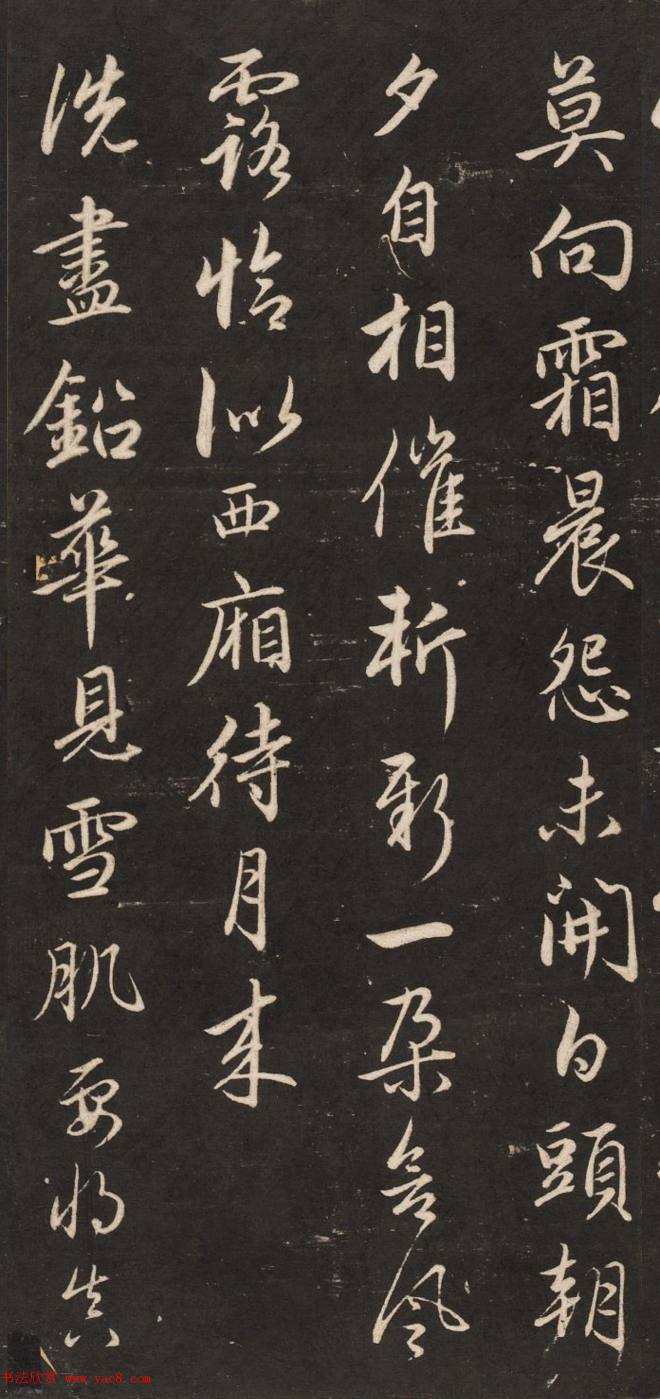 莫向霜晨怨未開白頭朝
夕自相催斬新一朶含風
露恰似西廂待月来
洗盡鉛華見雪肌要將真
书法欣赏 www.yac8.com